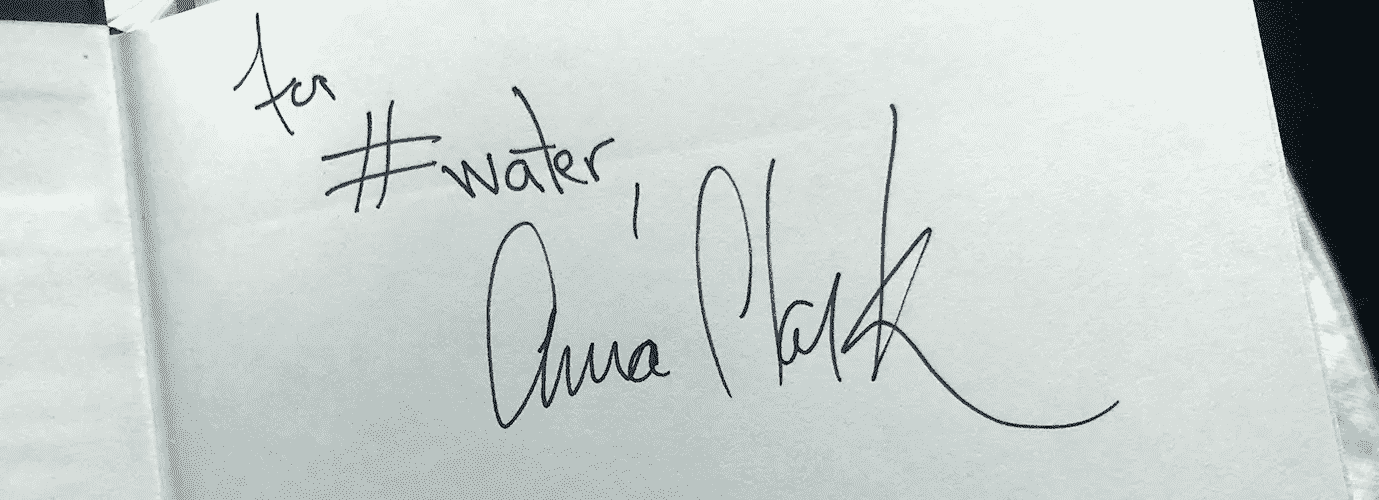 for
#water,
Anna Clark